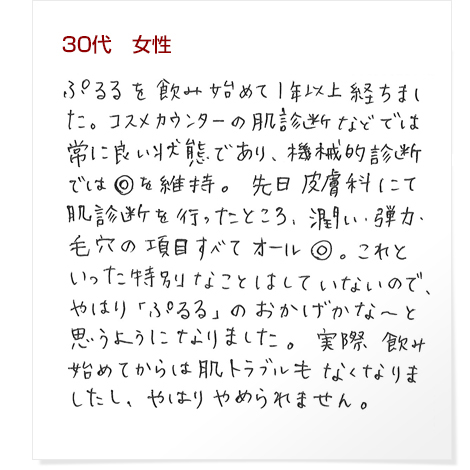 30代　女性
ぷるるを飲み始めて1年以上経ちまし
た。コスメカウンターの肌診断などでは
常に良い状態であり、機械的診断
では◎を維持。先日皮膚科にて
肌診断を行ったところ、潤い・弾力・
毛穴の項目すべてオール◎。これと
いった特別なことはしていないので、
やはり「ぷるる」のおかげかな〜と
思うようになりました。実際飲み
始めてからは肌トラブルもなくなりま
したし、やはりやめられません。